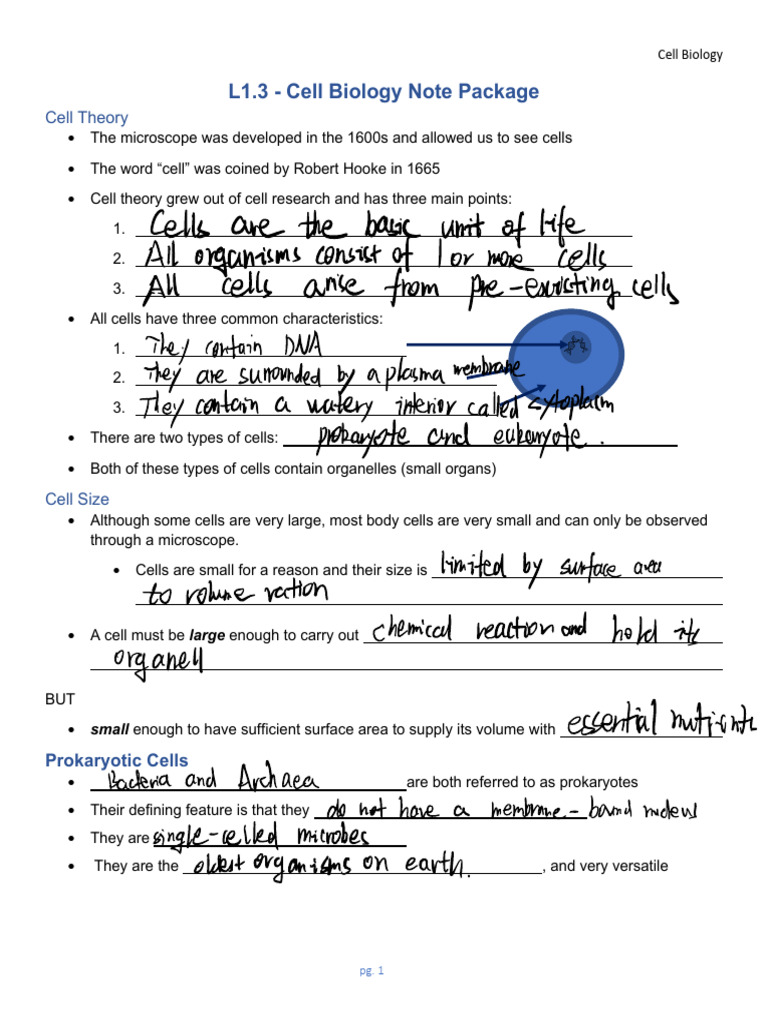 Cell Biology
L1.3 - Cell Biology Note Package
Cell Theory
• The microscope was developed in the 1600s and allowed us to see cells
• The word “cell” was coined by Robert Hooke in 1665
• Cell theory grew out of cell research and has three main points:
1. Cells are the basic unit of life
2. All organisms consist of 1 or more cells
3. All cells arise from pre-existing cells
• All cells have three common characteristics:
1. They contain DNA
2. They are surrounded by a plasma membrane
3. They contain a watery interior called cytoplasm
• There are two types of cells: prokaryote and eukaryote.
• Both of these types of cells contain organelles (small organs)
Cell Size
• Although some cells are very large, most body cells are very small and can only be observed
through a microscope.
• Cells are small for a reason and their size is limited by surface area
to volume ration
• A cell must be large enough to carry out chemical reaction and hold its
organell
BUT
• small enough to have sufficient surface area to supply its volume with essential nutrients
Prokaryotic Cells
• Bacteria and Archaea are both referred to as prokaryotes
• Their defining feature is that they do not have a membrane-bound nucleus
• They are single-celled microbes
• They are the oldest organisms on earth. , and very versatile
pg. 1